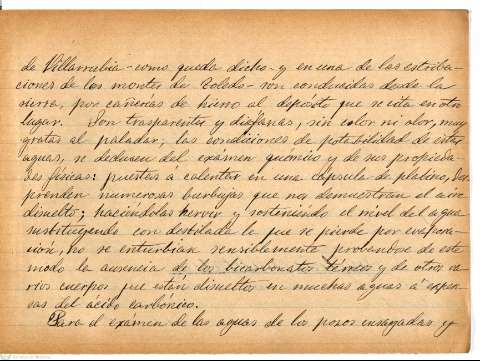 de Villarrubia - como queda dicho - y en una de las estriba-
ciones de los montes de Toledo - son conducidas desde la
sierra, por cañerias de hierro al depósito que se cita en otro
lugar. Son trasparentes y diafanas, sin color ni olor, muy
gratas al paladar, las condiciones de potabilidad de estas
aguas, se deducen del exámen químico y de sus propieda-
des fisicas: puestas a calentar en una cápsula de platino, des
prenden numerosas burbujas que nos demuestran el aire
disuelto; haciéndolas hervir y sosteniendo el nivel del agua
sustituyendo con destilada la que se pierde por evapora-
cion, no se enturbian sensiblemente, probandose de este
modo la ausencia de los bicarbonatos térreos y de otros va-
rios cuerpos que están disueltos en muchas aguas á expen-
sas del ácido carbónico.
Para el exámen de las aguas de los pozos ensayadas y